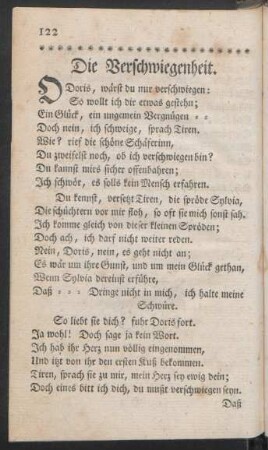 122
Die Verschwiegenheit.
O Doris, wärst du nur verschwiegen:
So wollt ich dir etwas gestehn;
Ein Glück, ein ungemein Vergnügen - -
Doch nein, ich schweige, sprach Tiren.
Wie? rief die schöne Schäferinn,
Du zweifelst noch, ob ich verschwiegen bin?
Du kannst mirs sicher offenbahren;
Ich schwör, es solls kein Mensch erfahren.
Du kennst, versetzt Tiren, die spröde Sylvia,
Die schüchtern vor mir floh, so oft sie mich sonst sah.
Ich komme gleich von dieser kleinen Spröden;
Doch ach, ich darf nicht weiter reden.
Nein, Doris, nein, es geht nicht an;
Es wär um ihre Gunst, und um mein Glück gethan,
Wenn Sylvia dereinst erführe,
Daß - - - Dringe nicht in mich, ich halte meine
Schwüre.
So liebt sie dich? fuhr Doris fort.
Ja wohl! Doch sage ja kein Wort.
Ich hab ihr Herz nun völlig eingenommen,
Und itzt von ihr den ersten Kuß bekommen.
Tiren, sprach sie zu mir, mein Herz sey ewig dein;
Doch eines bitt ich dich, du mußt verschwiegen seyn.
Daß